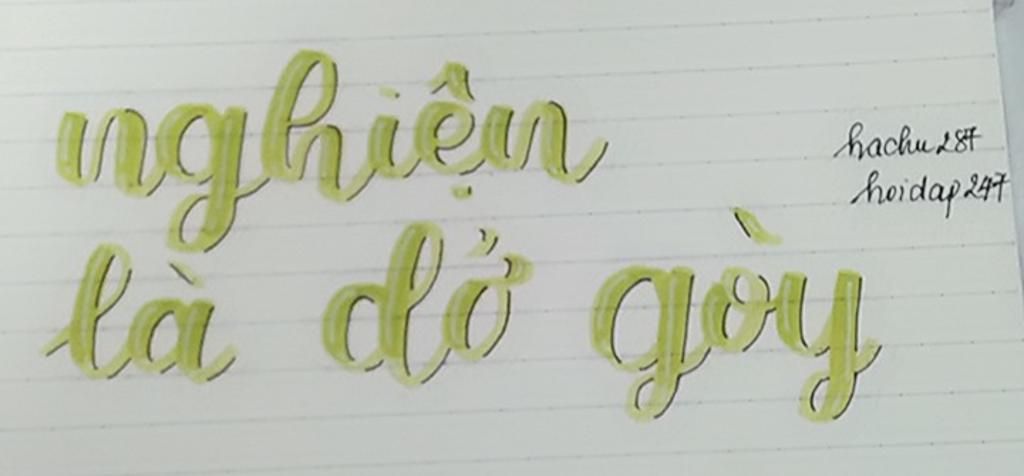 nghiện
là dở gòy
hachu287
hoidap247